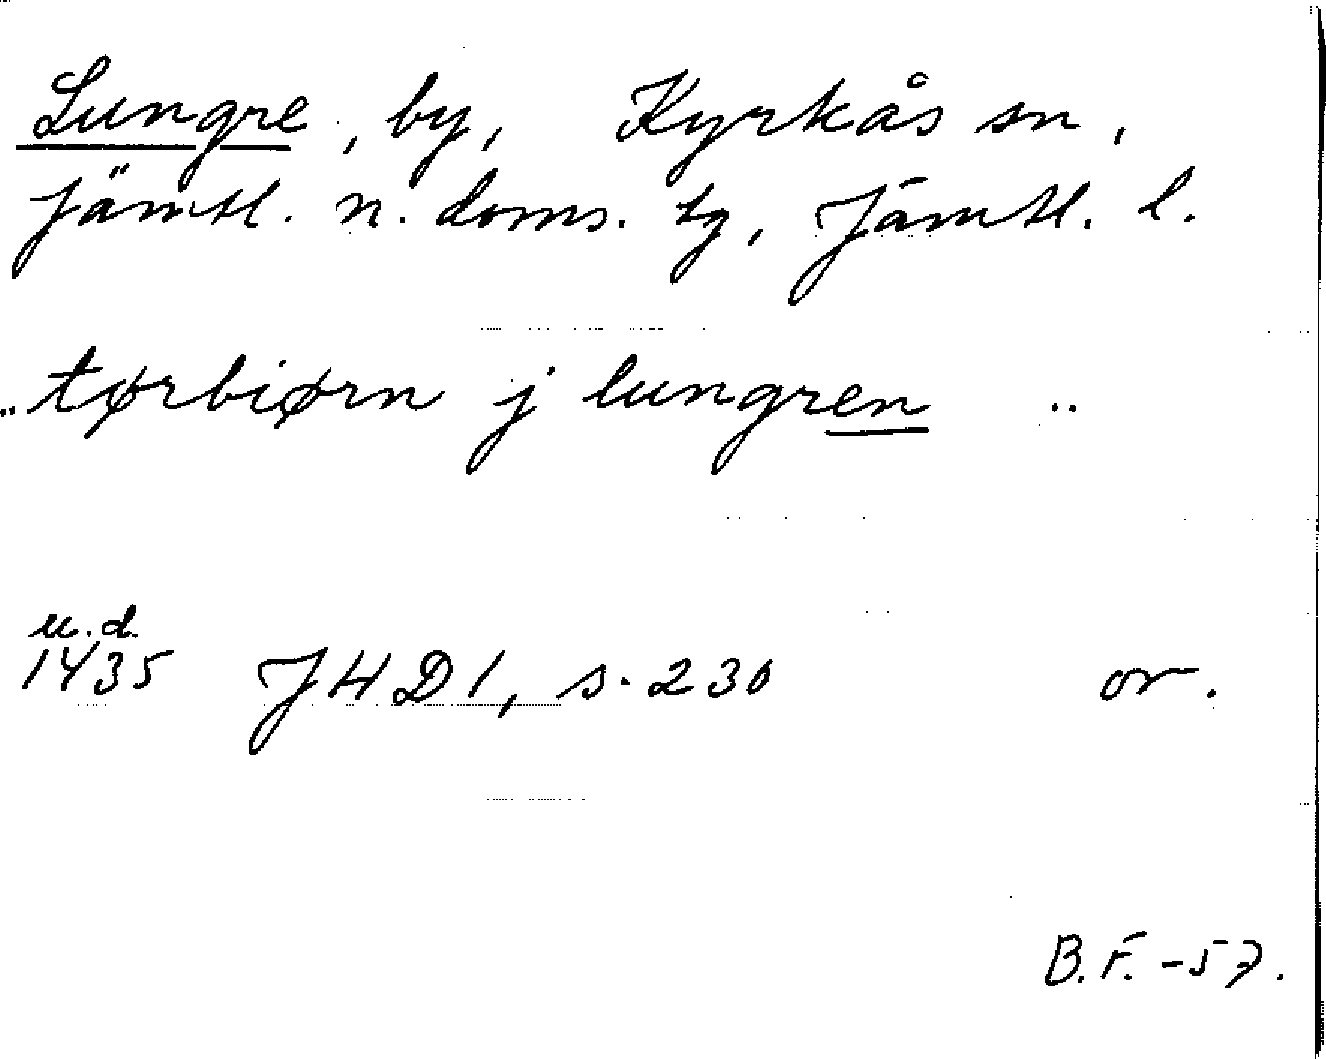 Lungre, by, Kyrkås sn,
Jämtl. n. doms. tg, Jämtl. l.
.. tørbiørn j lungren ..
u.d.
1435 JHD 1, s. 230 or.
B.F. -57.